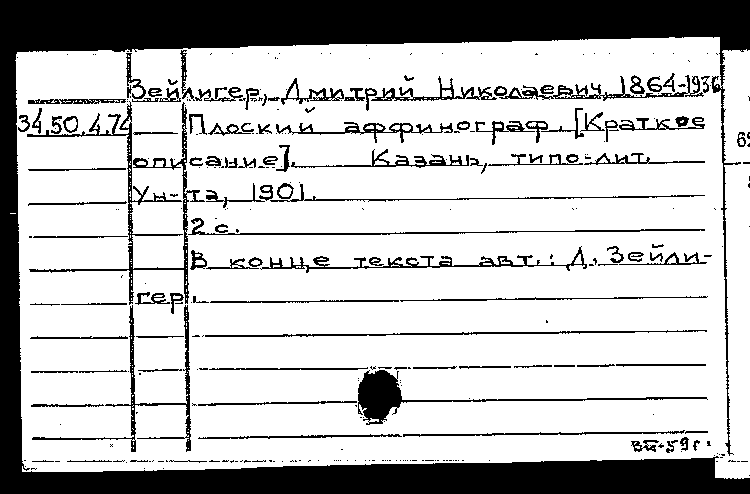 Зейлигер, Дмитрий Николаевич, 1864-1936
34.50.4.74 Плоский аффинограф. [Краткое
описание]. Казань, типо-лит.
Ун-та, 1901.
2 с.
В конце текста авт.: Д. Зейли-
гер.